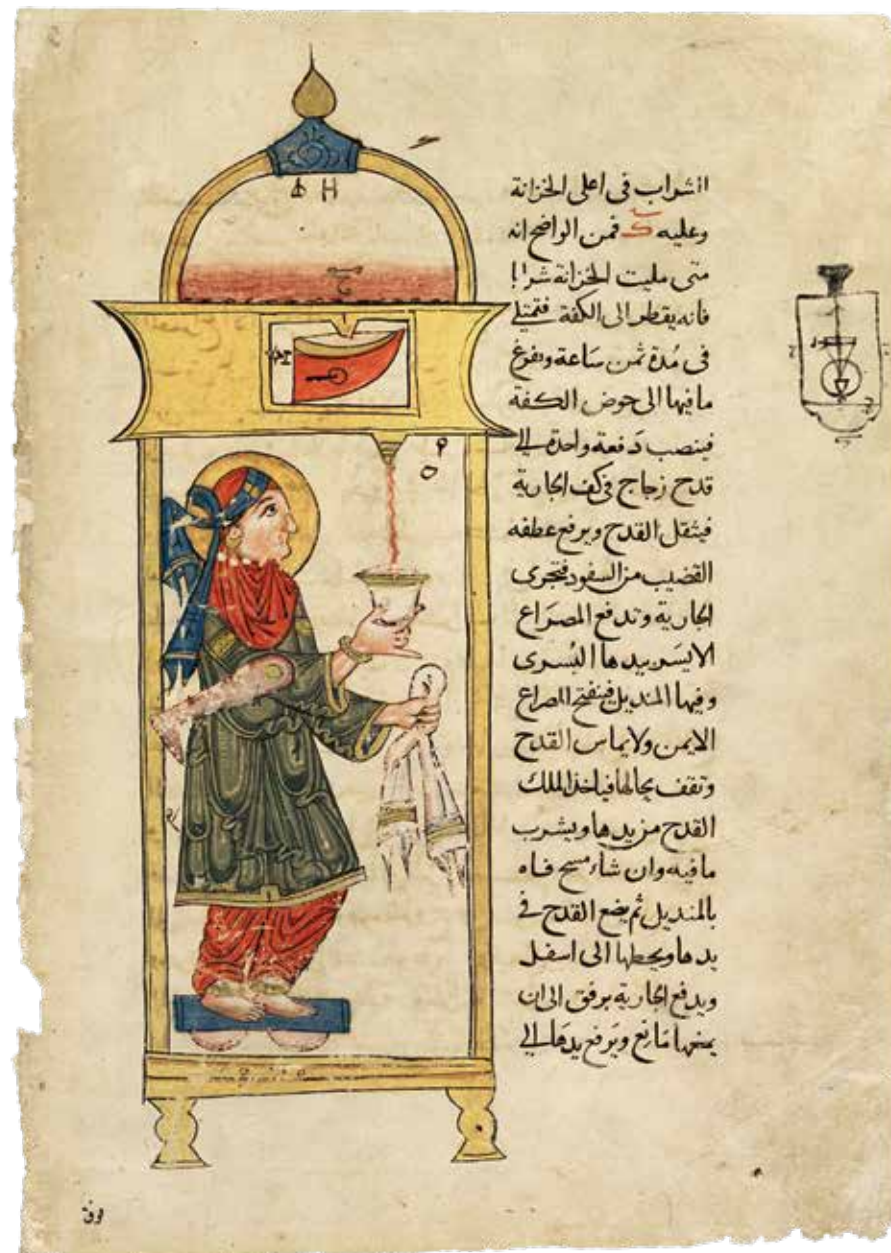 الشراب فى اعلى الخزانة
وعليه كـ فمن الواضح انه
متى مليت الخزانة شرابا
فانه يقطر الى الكفة فتمتلى
فى مدة ثمن ساعة ويفرغ
ما فيها الى حوض الكفة
فينصب دفعة واحدة الى
قدح زجاج فى كف الجارية
فيثقل القدح ويرفع عطفه
القضيب من السفود فتجرى
الجارية وتدفع المصراع
الايسر بيدها اليسرى
وفيها المنديل فينفتح المصراع
الايمن ولا يماس القدح
وتقف بحالها فياخذ الملك
القدح من يدها ويشرب
ما فيه وان شاء مسح فاه
بالمنديل ثم يضع القدح فى
يدها ويحطها الى اسفل
ويدفع الجارية برفق الى ان
يمنعها مانع ويرفع يدها الى